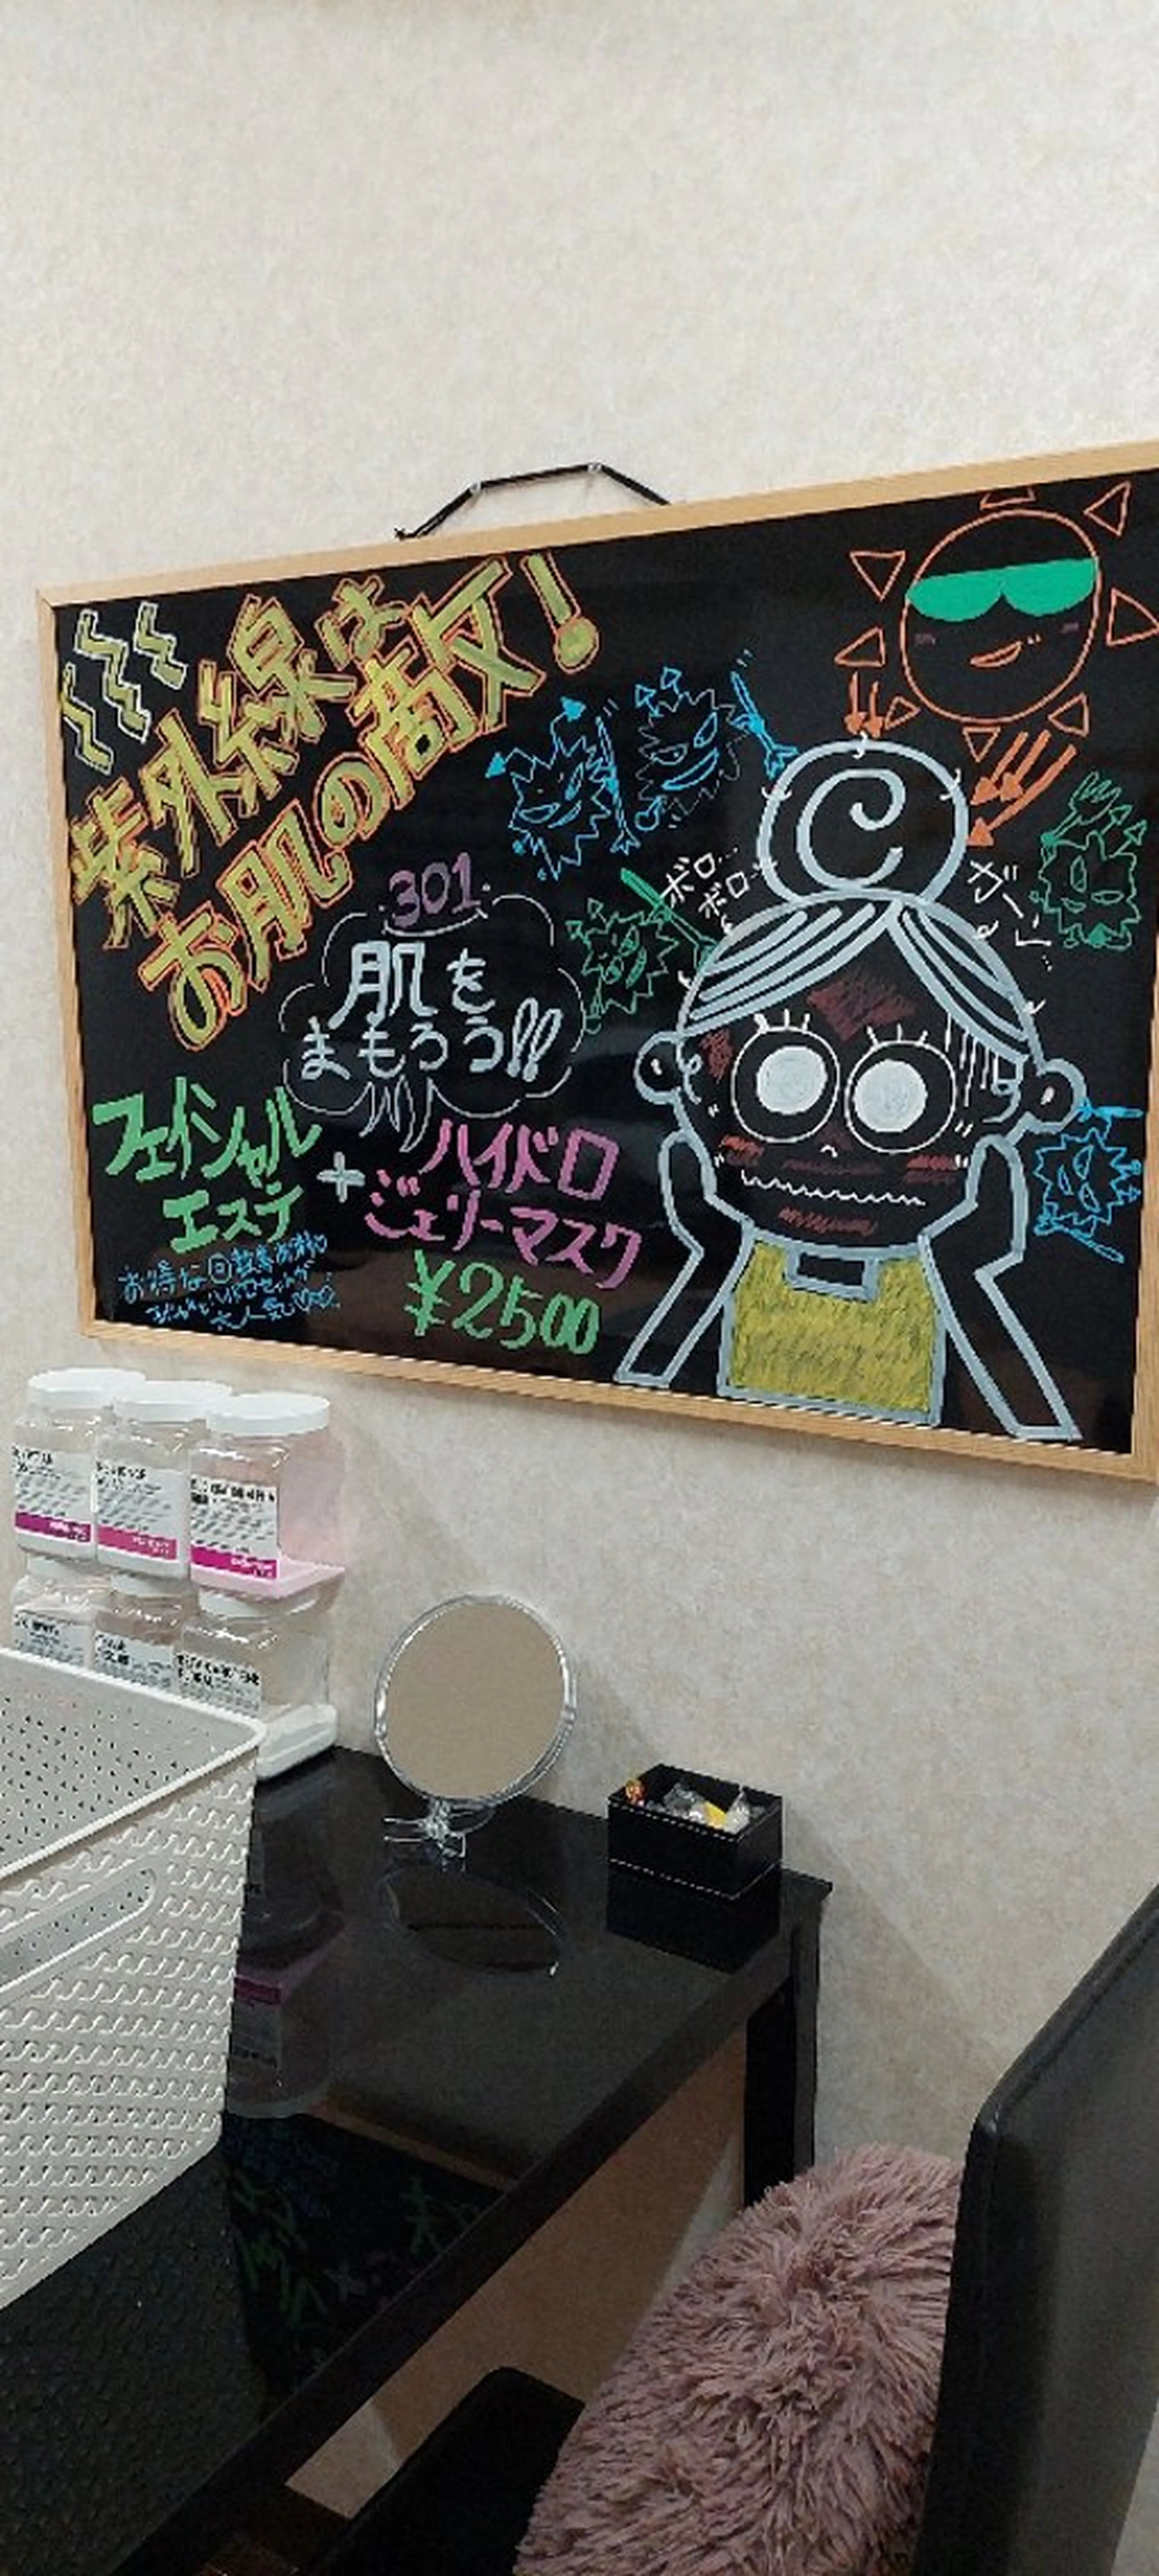 紫外線は
お肌の敵!
301.
肌を
まもろう!!
ボロ…
ボロ…
フェイシャル
エステ
+
ハイドロ
ジェリーマスク
¥2500
お得な回数券